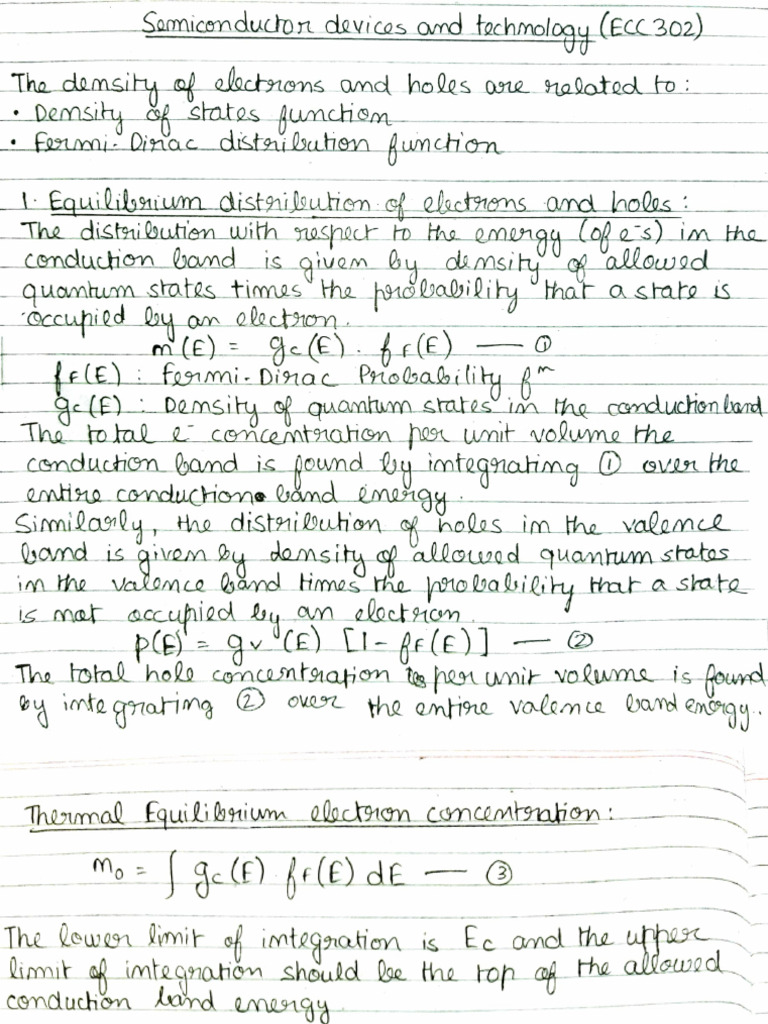 Semiconductor devices and technology (ECC 302)
The density of electrons and holes are related to:
• Density of states function
• Fermi-Dirac distribution function
1. Equilibrium distribution of electrons and holes:
The distribution with respect to the energy (of e⁻s) in the
conduction band is given by density of allowed
quantum states times the probability that a state is
occupied by an electron.
n(E) = gc(E) . fF(E) — ①
fF(E) : Fermi-Dirac Probability fⁿ
gc(E) : Density of quantum states in the conduction band
The total e⁻ concentration per unit volume the
conduction band is found by integrating ① over the
entire conduction band energy.
Similarly, the distribution of holes in the valence
band is given by density of allowed quantum states
in the valence band times the probability that a state
is not occupied by an electron.
p(E) = gv (E) [1 - fF(E)] — ②
The total hole concentration per unit volume is found
by integrating ② over the entire valence band energy..
Thermal Equilibrium electron concentration:
n₀ = ∫ gc(E) fF(E) dE — ③
The lower limit of integration is Ec and the upper
limmit of integration should be the top of the allowed
conduction band energy.